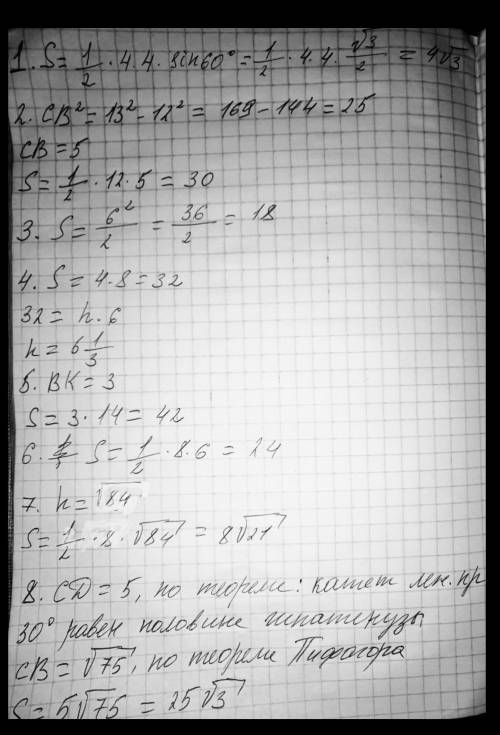 1. S = 1/2 · 4 · 4 · sin60° = 1/2 · 4 · 4 · √3/2 = 4√3
2. CB² = 13² - 12² = 169 - 144 = 25
CB = 5
S = 1/2 · 12 · 5 = 30
3. S = 6²/2 = 36/2 = 18
4. S = 4 · 8 = 32
32 = h · 6
h = 6 1/3
5. BK = 3
S = 3 · 14 = 42
6. S = 1/2 · 8 · 6 = 24
7. h = √84
S = 1/2 · 8 · √84 = 8√21
8. CD = 5, по теореме: катет леж. пр
30° равен половине гипатенузы
CB = √75, по теореме Пифагора
S = 5√75 = 25√3